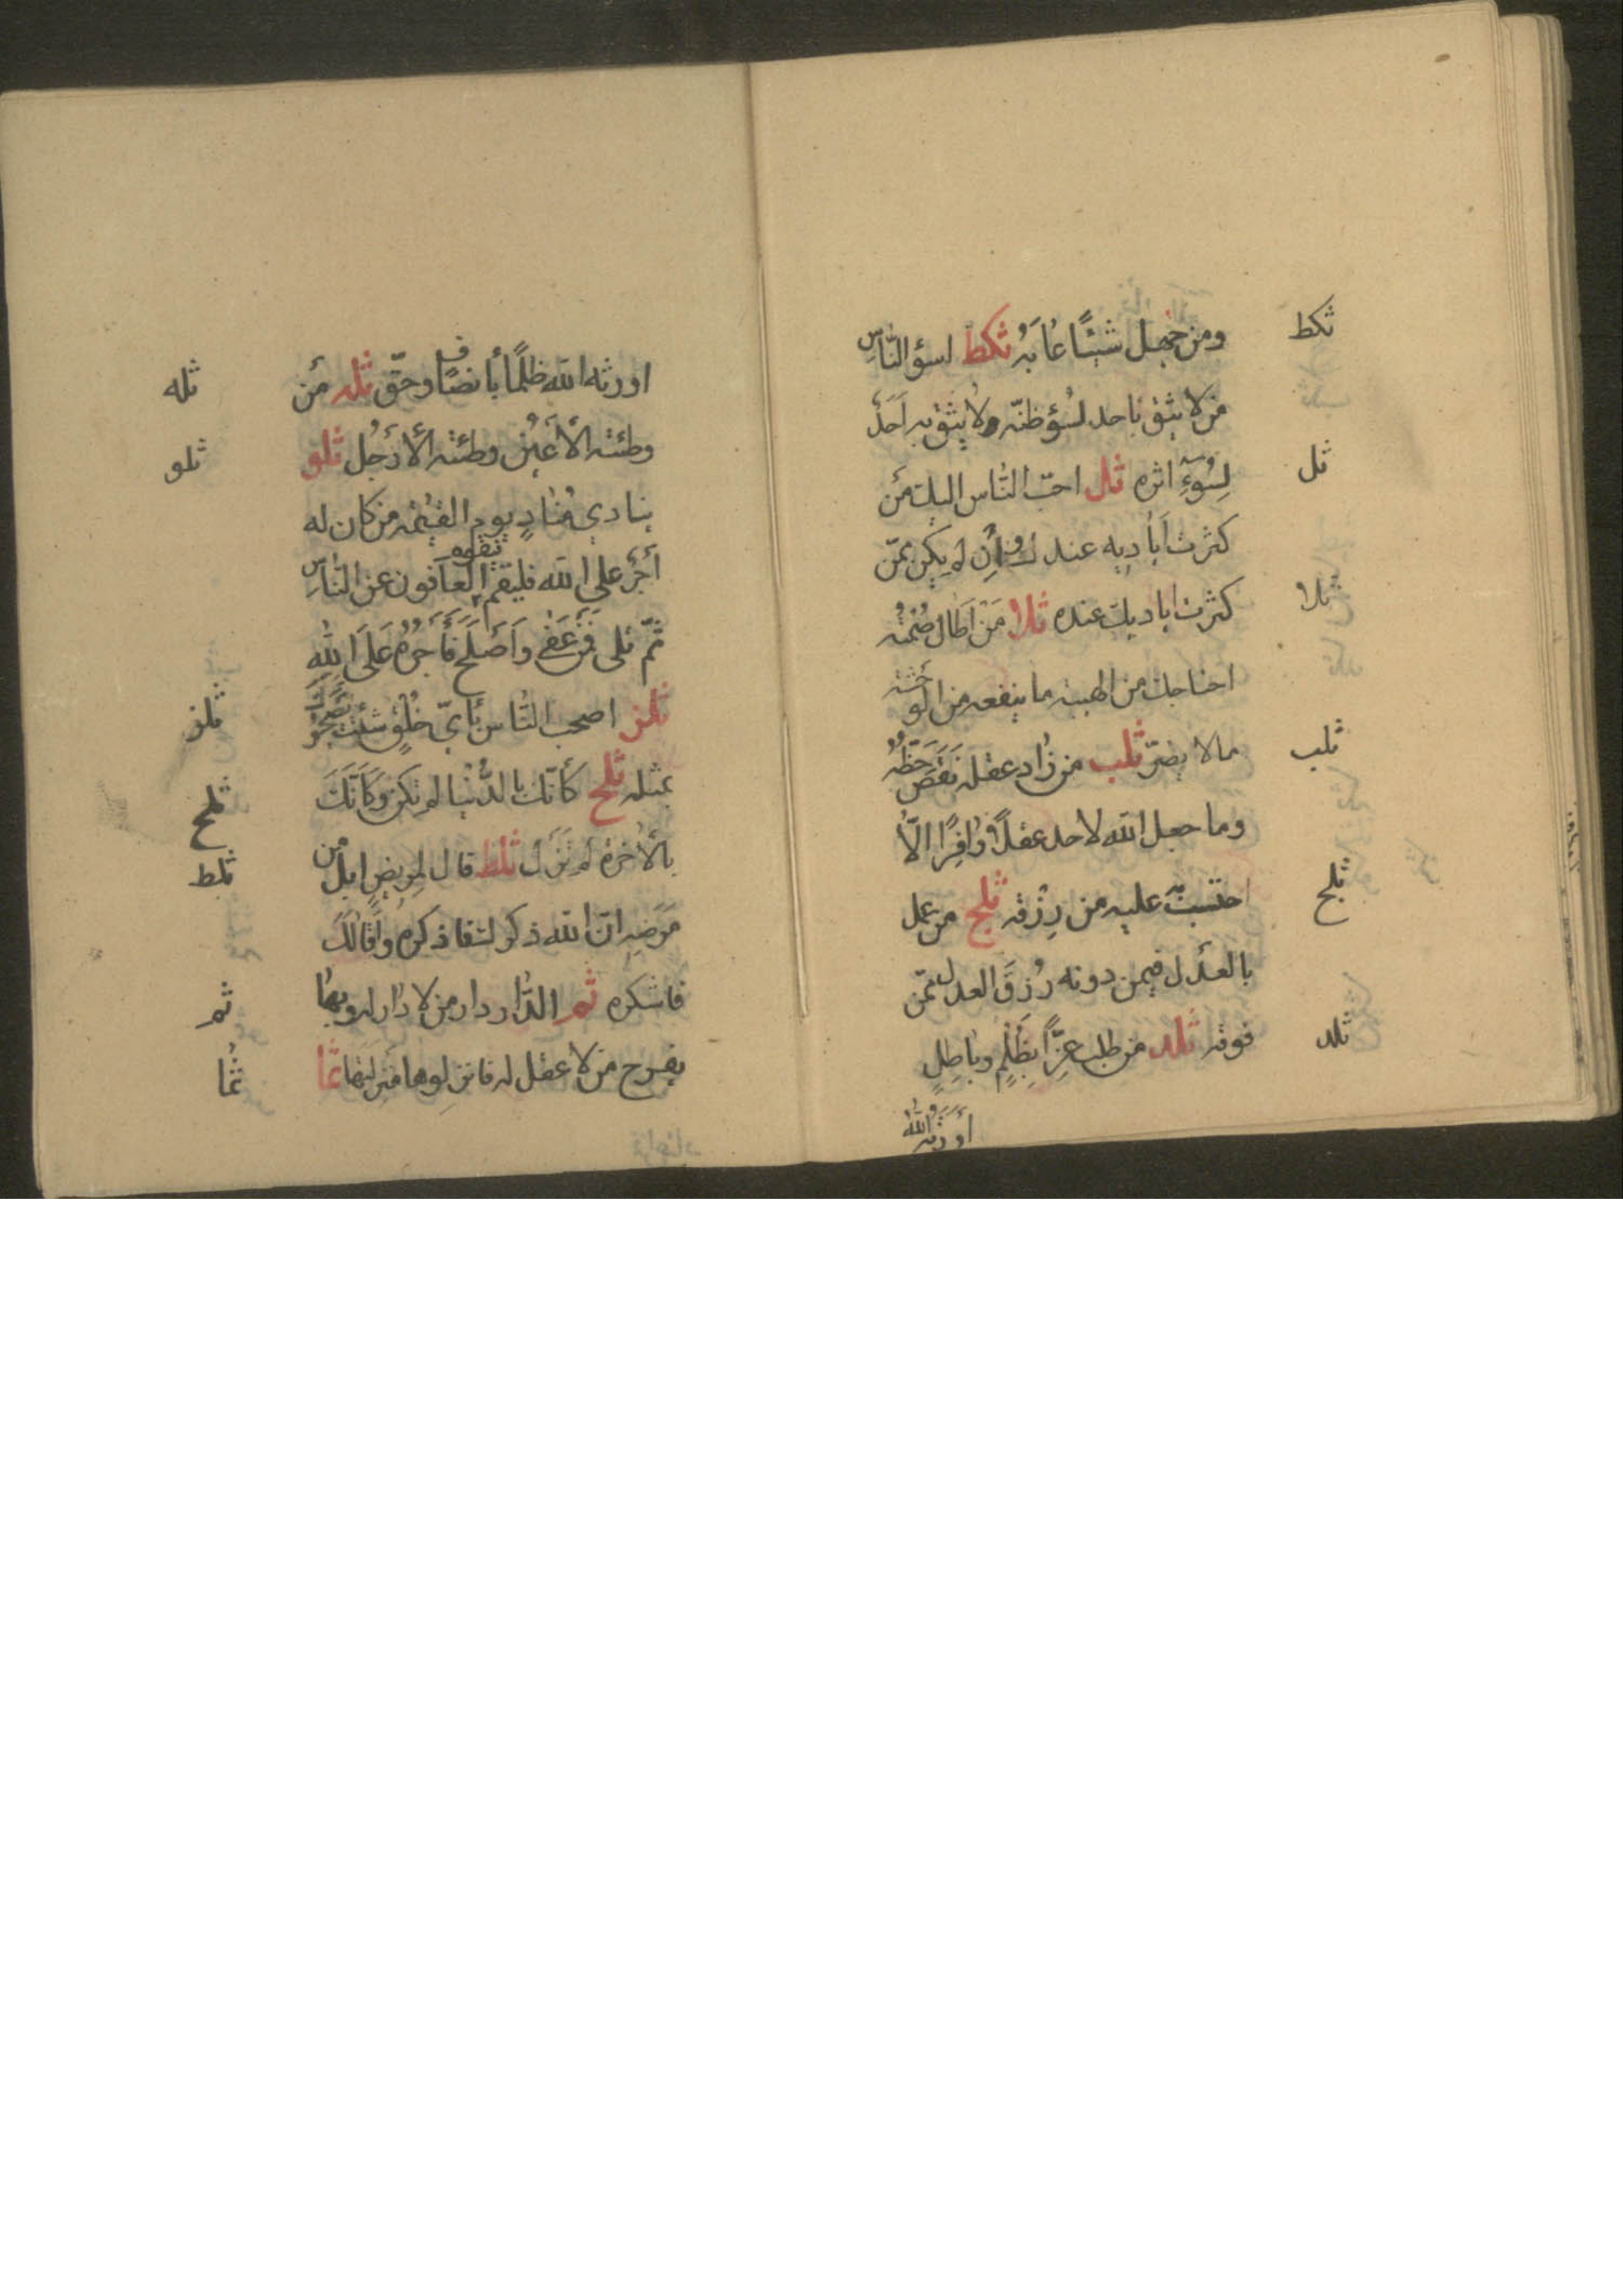 ومن جهل شيئًا عابَهُ ثكط اسؤ النّاسِ
من لا يثق باحد لسُؤ ظنّه ولا يثق به اَحَدٌ
لِسُوءِ اثره ثل احبّ النّاس اليك مَن
كثرت اَياديه عندك واِن لم يكن فمّن
كثرت اياديك عنده ثلا مَن اَطال صُمتُه
اجتاحك من الهيبة ما ينفعه من الوحشة
مالا يضرّ ثلب من زاد عقله نَقَصَ حَظّهُ
وما جعل الله لاحد عقلًا وافِرًا الّا
احتسبَ عليه من رِزْقه ثلج من عمل
بالعدل فيمن دونه رُزِقَ العدل ممّن
فوقه ثلد من طلب عِزًّا بِظُلمٍ وباطِلٍ
اَورَثَهُ اللهُ
ثكط
ثل
ثلا
ثلب
ثلج
ثلد
اورثه الله ظلمًا بأنصافٍ وحقّ ثله مَن
وطئته الأَعيُن وطئته الأَرجُل ثلو
ينادي مُنادٍ يوم القيٰمة من كان له
أجرٌ على الله فليقم فيقوم العافون عن النّاسِ
ثمّ تلى فَمَنْ عَفٰى وَاَصلَحَ فَاَجرُهُ عَلَى اللهِ
ثلز اصحب النّاس بأيّ خُلُقٍ شئت يصحبوك
بمثله ثلح كأنّك بالدُّنيا لم تكن وَكَأنَّكَ
بالاٰخرة لم تَزَل ثلط قال لمريضٍ ابلّ من
مَرَضِهِ انّ الله ذكرك فاذكره واَقالَكَ
فاشكره ثم الدّار دار من لا دار له وبها
يفرح من لا عقل له فانزِلوها منزِلتها ثما
ثله
ثلو
ثلز
ثلح
ثلط
ثم
ثما